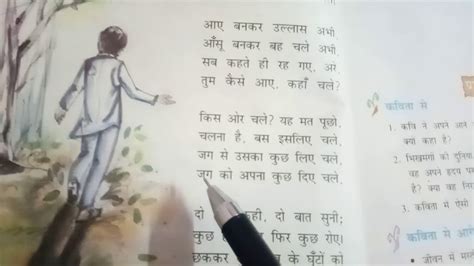 आए बनकर उल्लास अभी,
आँसू बनकर बह चले अभी,
सब कहते ही रह गए, अरे,
तुम कैसे आए, कहाँ चले?
किस ओर चले? यह मत पूछो,
चलना है, बस इसलिए चले,
जग से उसका कुछ लिए चले,
जग को अपना कुछ दिए चले,
दो कही, दो बात सुनी;
कुछ फिर कुछ रोए।
छककर के घूँटों को
कविता से
1. कवि ने अपने आने
क्यों कहा है?
2. भिखमंगों की दुनिया
वह अपने हृदय पर
है? क्या वह
3. कविता में ऐसी
कविता से आगे
• जीवन में